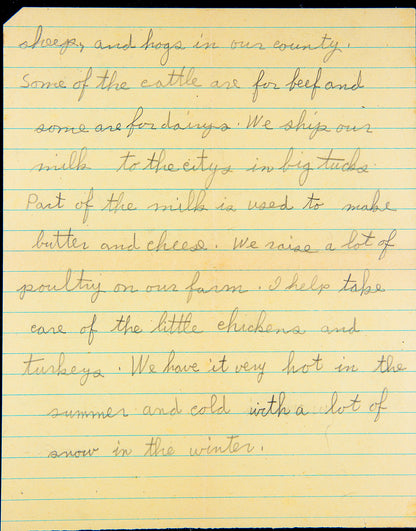 sheep, and hogs in our county.
Some of the cattle are for beef and
some are for dairys. We ship our
milk to the citys in big tucks.
Part of the milk is used to make
butter and chees. We raise a lot of
poultry on our farm. I help take
care of the little chickens and
turkeys. We have it very hot in the
summer and cold with a lot of
snow in the winter.